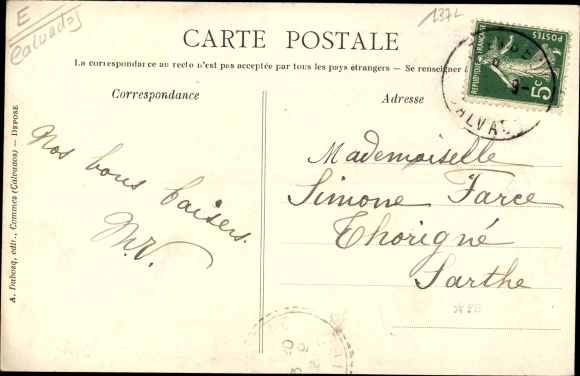 E
Calvados
1372
CARTE POSTALE
La correspondance au recto n'est pas acceptée par tous les pays étrangers — Se renseigner
Correspondance
Adresse
REPUBLIQUE FRANÇAISE
POSTES
5c
CALVADOS
Nos bons baisers.
M.V.
Mademoiselle
Simone Farce
Thorigné
Sarthe
A. Dubosq, edit., Commes (Calvados) — DEPOSE
PH